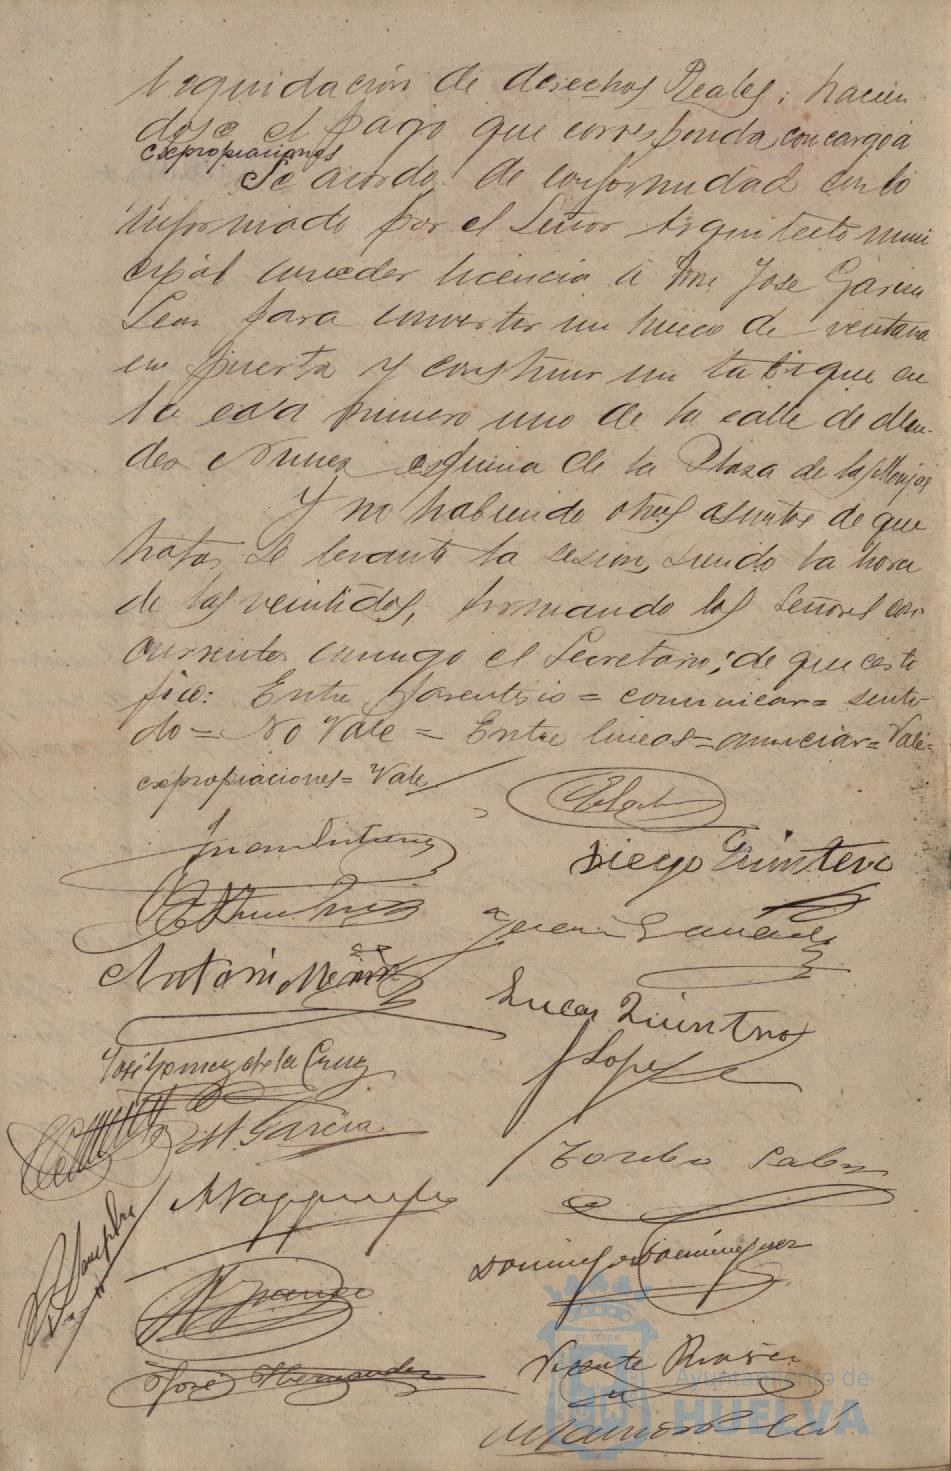 liquidación de derechos Reales; hacien
dose el pago que corresponda, con cargo á
expropiaciones
Se acordó de conformidad con lo
informado por el Señor Arquitecto muni
cipal conceder licencia á Don José García
Leon para convertir un hueco de ventana
en puerta y construir un tabique en
la casa número uno de la calle de Men-
dez Nunez esquina de la Plaza de las Monjas
Y no habiendo otros asuntos de que
tratar se levantó la sesion, siendo la hora
de las veintidos, firmando los Señores con
currentes conmigo el Secretario; de que certi
fico: Entre parentesis = comunicar = senti-
do = No Vale = Entre lineas = anunciar = Vale =
expropiaciones = Vale
Juan Quintero
Diego Quintero
Antonio
Lucas Quintero
José Gomez de la Cruz
J Lopez
M. García
Toribio
Domingo Dominguez
José Hernandez
Vicente
Ayuntamiento de
HUELVA